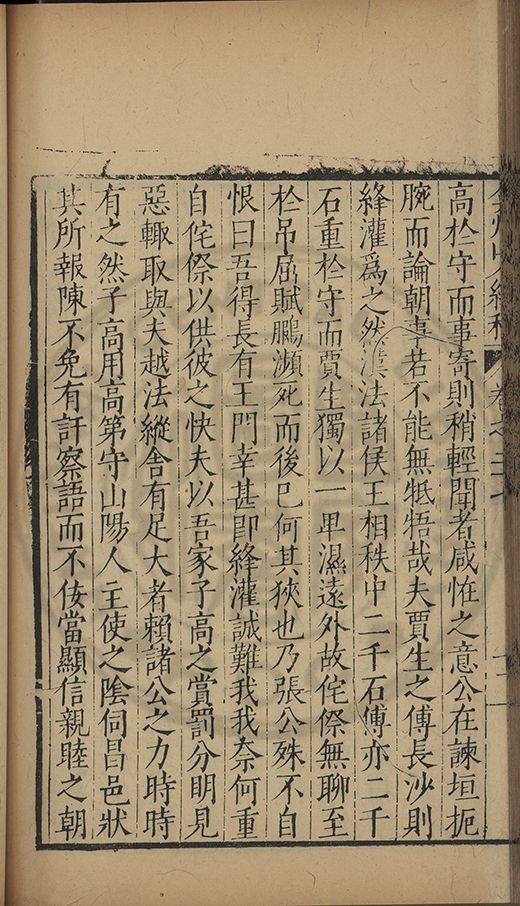 弇州山人續稿 卷之三十七 十一
高於守而事寄則稍輕聞者咸恠之意公在諫垣扼
腕而論朝事若不能無牴牾哉夫賈生之傅長沙則
絳灌爲之然漢法諸侯王相秩中二千石傅亦二千
石重於守而賈生獨以一卑濕遠外故侘傺無聊至
於吊屈賦鵩瀕死而後巳何其狹也乃張公殊不自
恨曰吾得長有王門幸甚即絳灌誠難我我奈何重
自侘傺以供彼之快夫以吾家子高之賞罰分明見
惡輙取與夫越法縱舍有足大者賴諸公之力時時
有之然子高用高第守山陽人主使之陰伺昌邑狀
其所報陳不免有訐察語而不佞當顯信親睦之朝